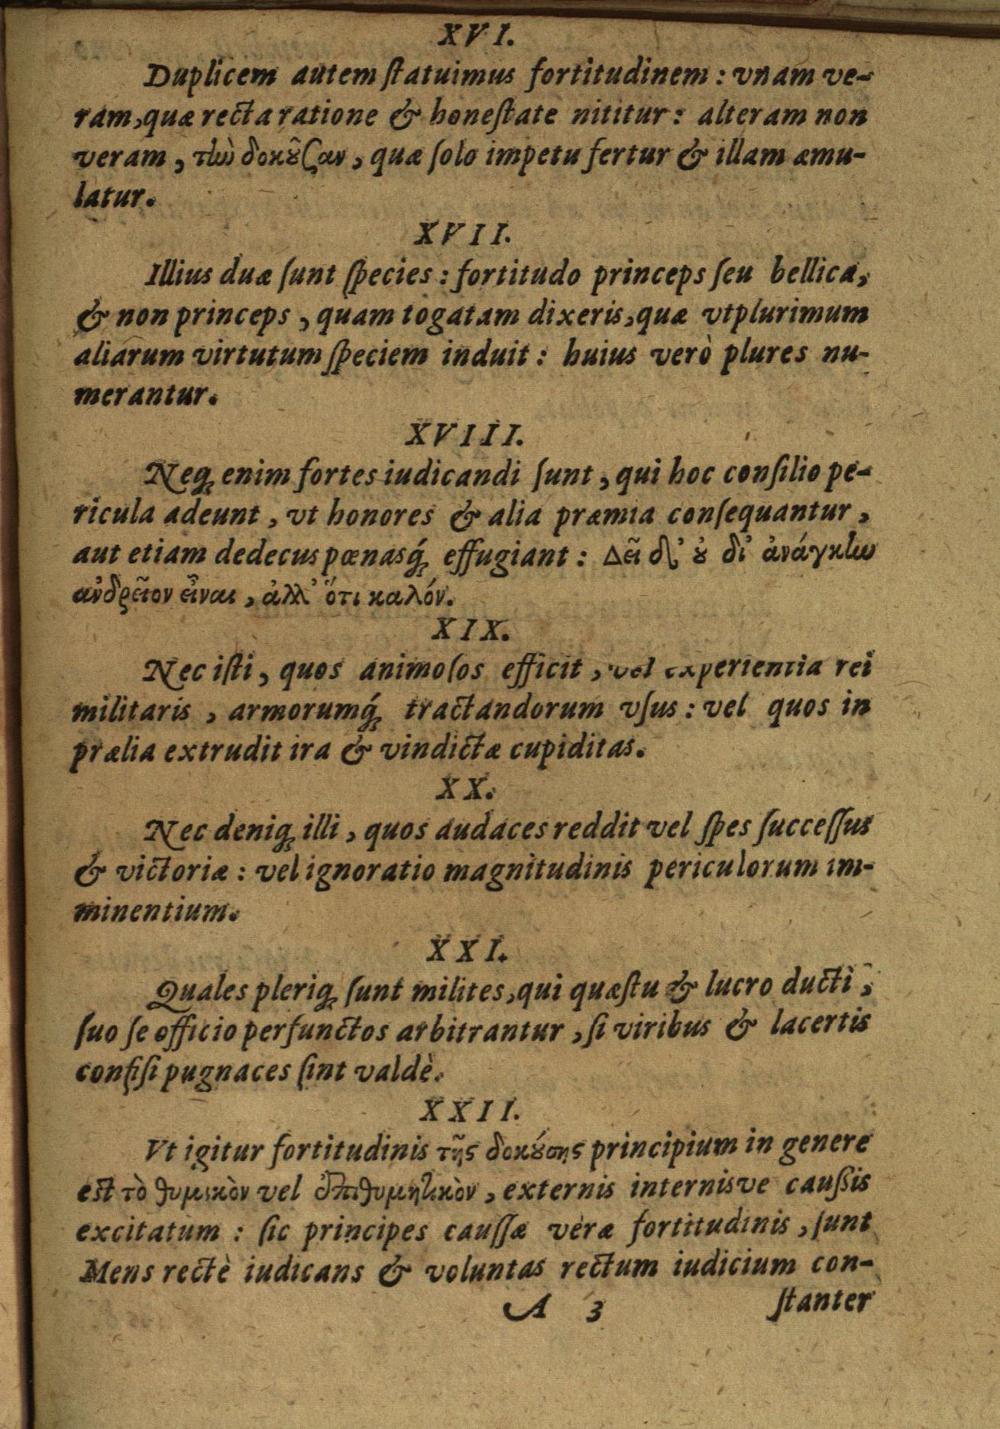 XVI.
Duplicem autem ſtatuimus fortitudinem : vnam ve-
ram, quæ recta ratione & honeſtate nititur : alteram non
veram, τὼ δοκȣ͂ζαν, quæ ſolo impetu fertur & illam æmu-
latur.
XVII.
Illius duæ ſunt ſpecies : fortitudo princeps ſeu bellica,
& non princeps, quam togatam dixeris, quæ vtplurimum
aliarum virtutum ſpeciem induit : huius verò plures nu-
merantur.
XVIII.
Neqꝫ enim fortes iudicandi ſunt, qui hoc conſilio pe-
ricula adeunt, vt honores & alia præmia conſequantur,
aut etiam dedecus pœnasqꝫ́ effugiant : Δεῖ δ' ȣ̓ δι' ἀνάγκlω
ἀνδρεῖον εἶναι, ἀλλ' ὅτι καλόν.
XIX.
Nec iſti, quos animoſos efficit, vel experientia rei
militaris, armorumqꝫ́ tractandorum vſus : vel quos in
prælia extrudit ira & vindictæ cupiditas.
XX.
Nec deniqꝫ illi, quos audaces reddit vel ſpes ſucceſſus
& victoriæ : vel ignoratio magnitudinis periculorum im-
minentium.
XXI.
Quales pleriqꝫ ſunt milites, qui quæſtu & lucro ducti,
ſuo ſe officio perfunctos arbitrantur, ſi viribus & lacertis
confiſi pugnaces ſint valdè.
XXII.
Vt igitur fortitudinis τῆς δοκȣ́σης principium in genere
est τὸ θυμικὸν vel ἐπιθυμητικὸν, externis internisve cauſſis
excitatum : ſic principes cauſſæ veræ fortitudinis, ſunt
Mens rectè iudicans & voluntas rectum iudicium con-
A 3 ſtanter